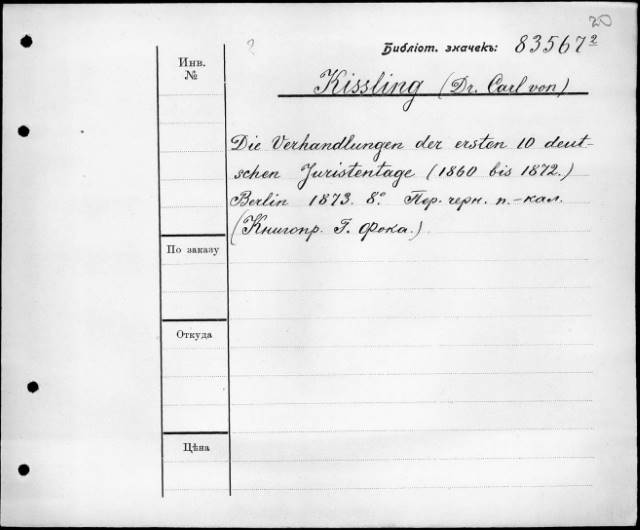 20
?
Библіот. значекъ: 83567²
Инв.
№
Kissling (Dr. Carl von)
Die Verhandlungen der ersten 10 deut-
schen Juristentage (1860 bis 1872.)
Berlin 1873. 8º. Пер. черн. п.-кал.
(Книгопр. Г. Фока.)
По заказу
Откуда
Цѣна